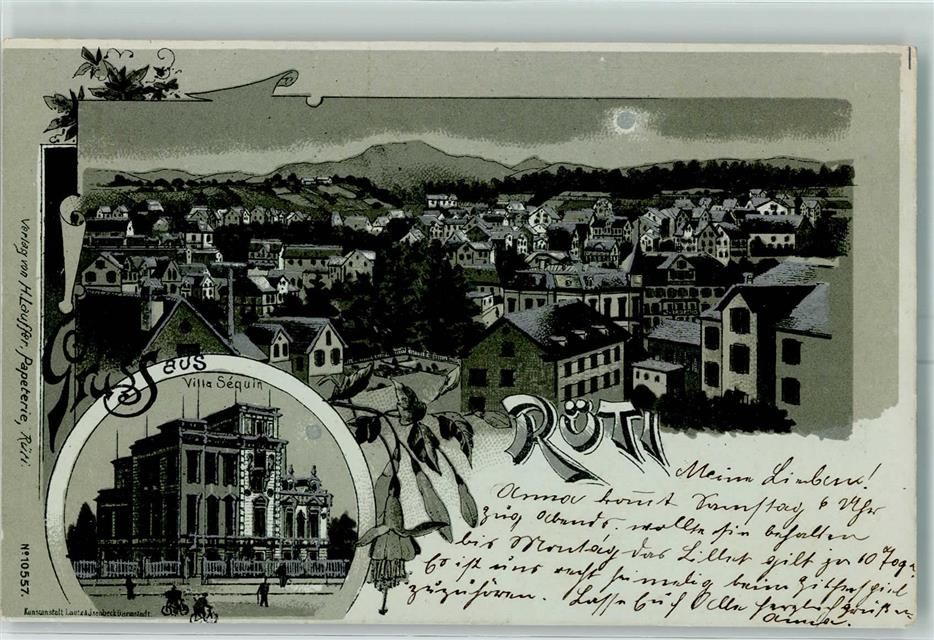 Gruss aus
RÜTI
Villa Séquin
Verlag von H. Lauffer, Papeterie, Rüti.
No 10557.
Kunstanstalt Lautz & Isenbeck Darmstadt.
Meine Lieben!
Anna kom̅t Samstag 6 Uhr
Zug, Abends, wollte sie behalten
bis Montag das Billet gilt ja 10 Tage
Es ist uns recht heimelig beim Zitherspiel
zuzuhören. Lasse Euch Alle herzlich grüßen
Anna.